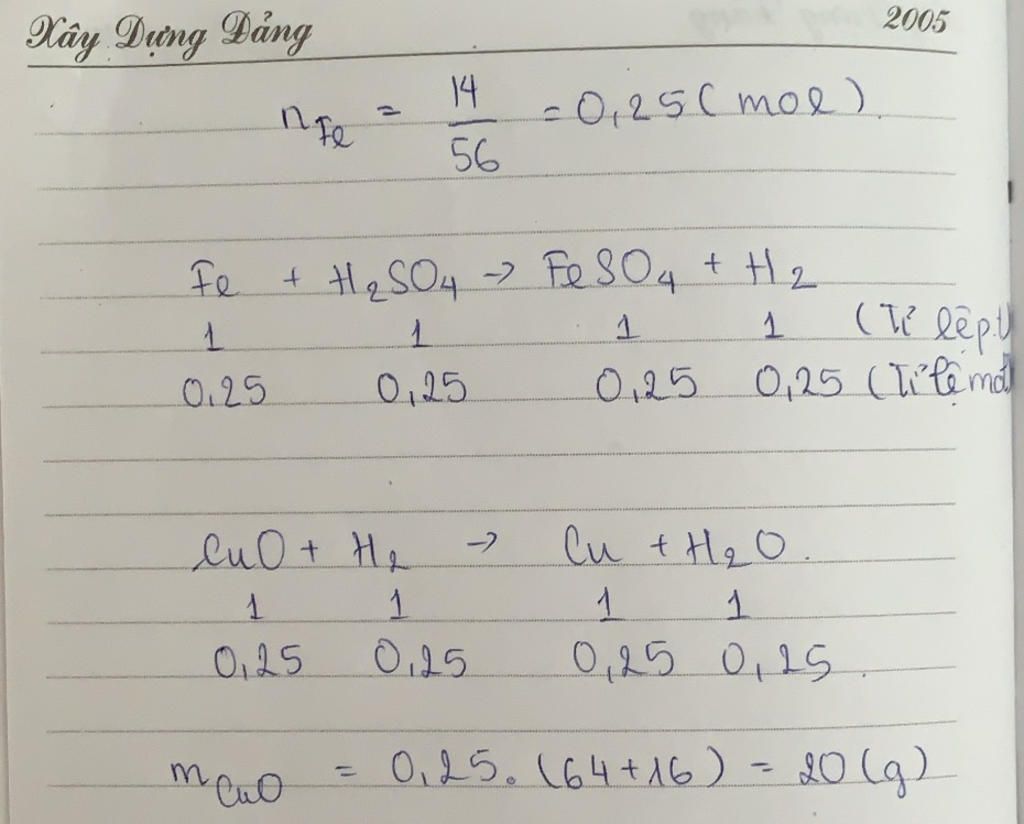 Xây Dựng Đảng 2005
n_Fe = 14/56 = 0,25 (mol).
Fe + H₂SO₄ → FeSO₄ + H₂
1 1 1 1 (Tỉ lệ p.t
0.25 0,25 0,25 0,25 (Tỉ lệ mol
CuO + H₂ → Cu + H₂O.
1 1 1 1
0,25 0,25 0,25 0,25.
m_CuO = 0,25.(64+16) = 20(g)